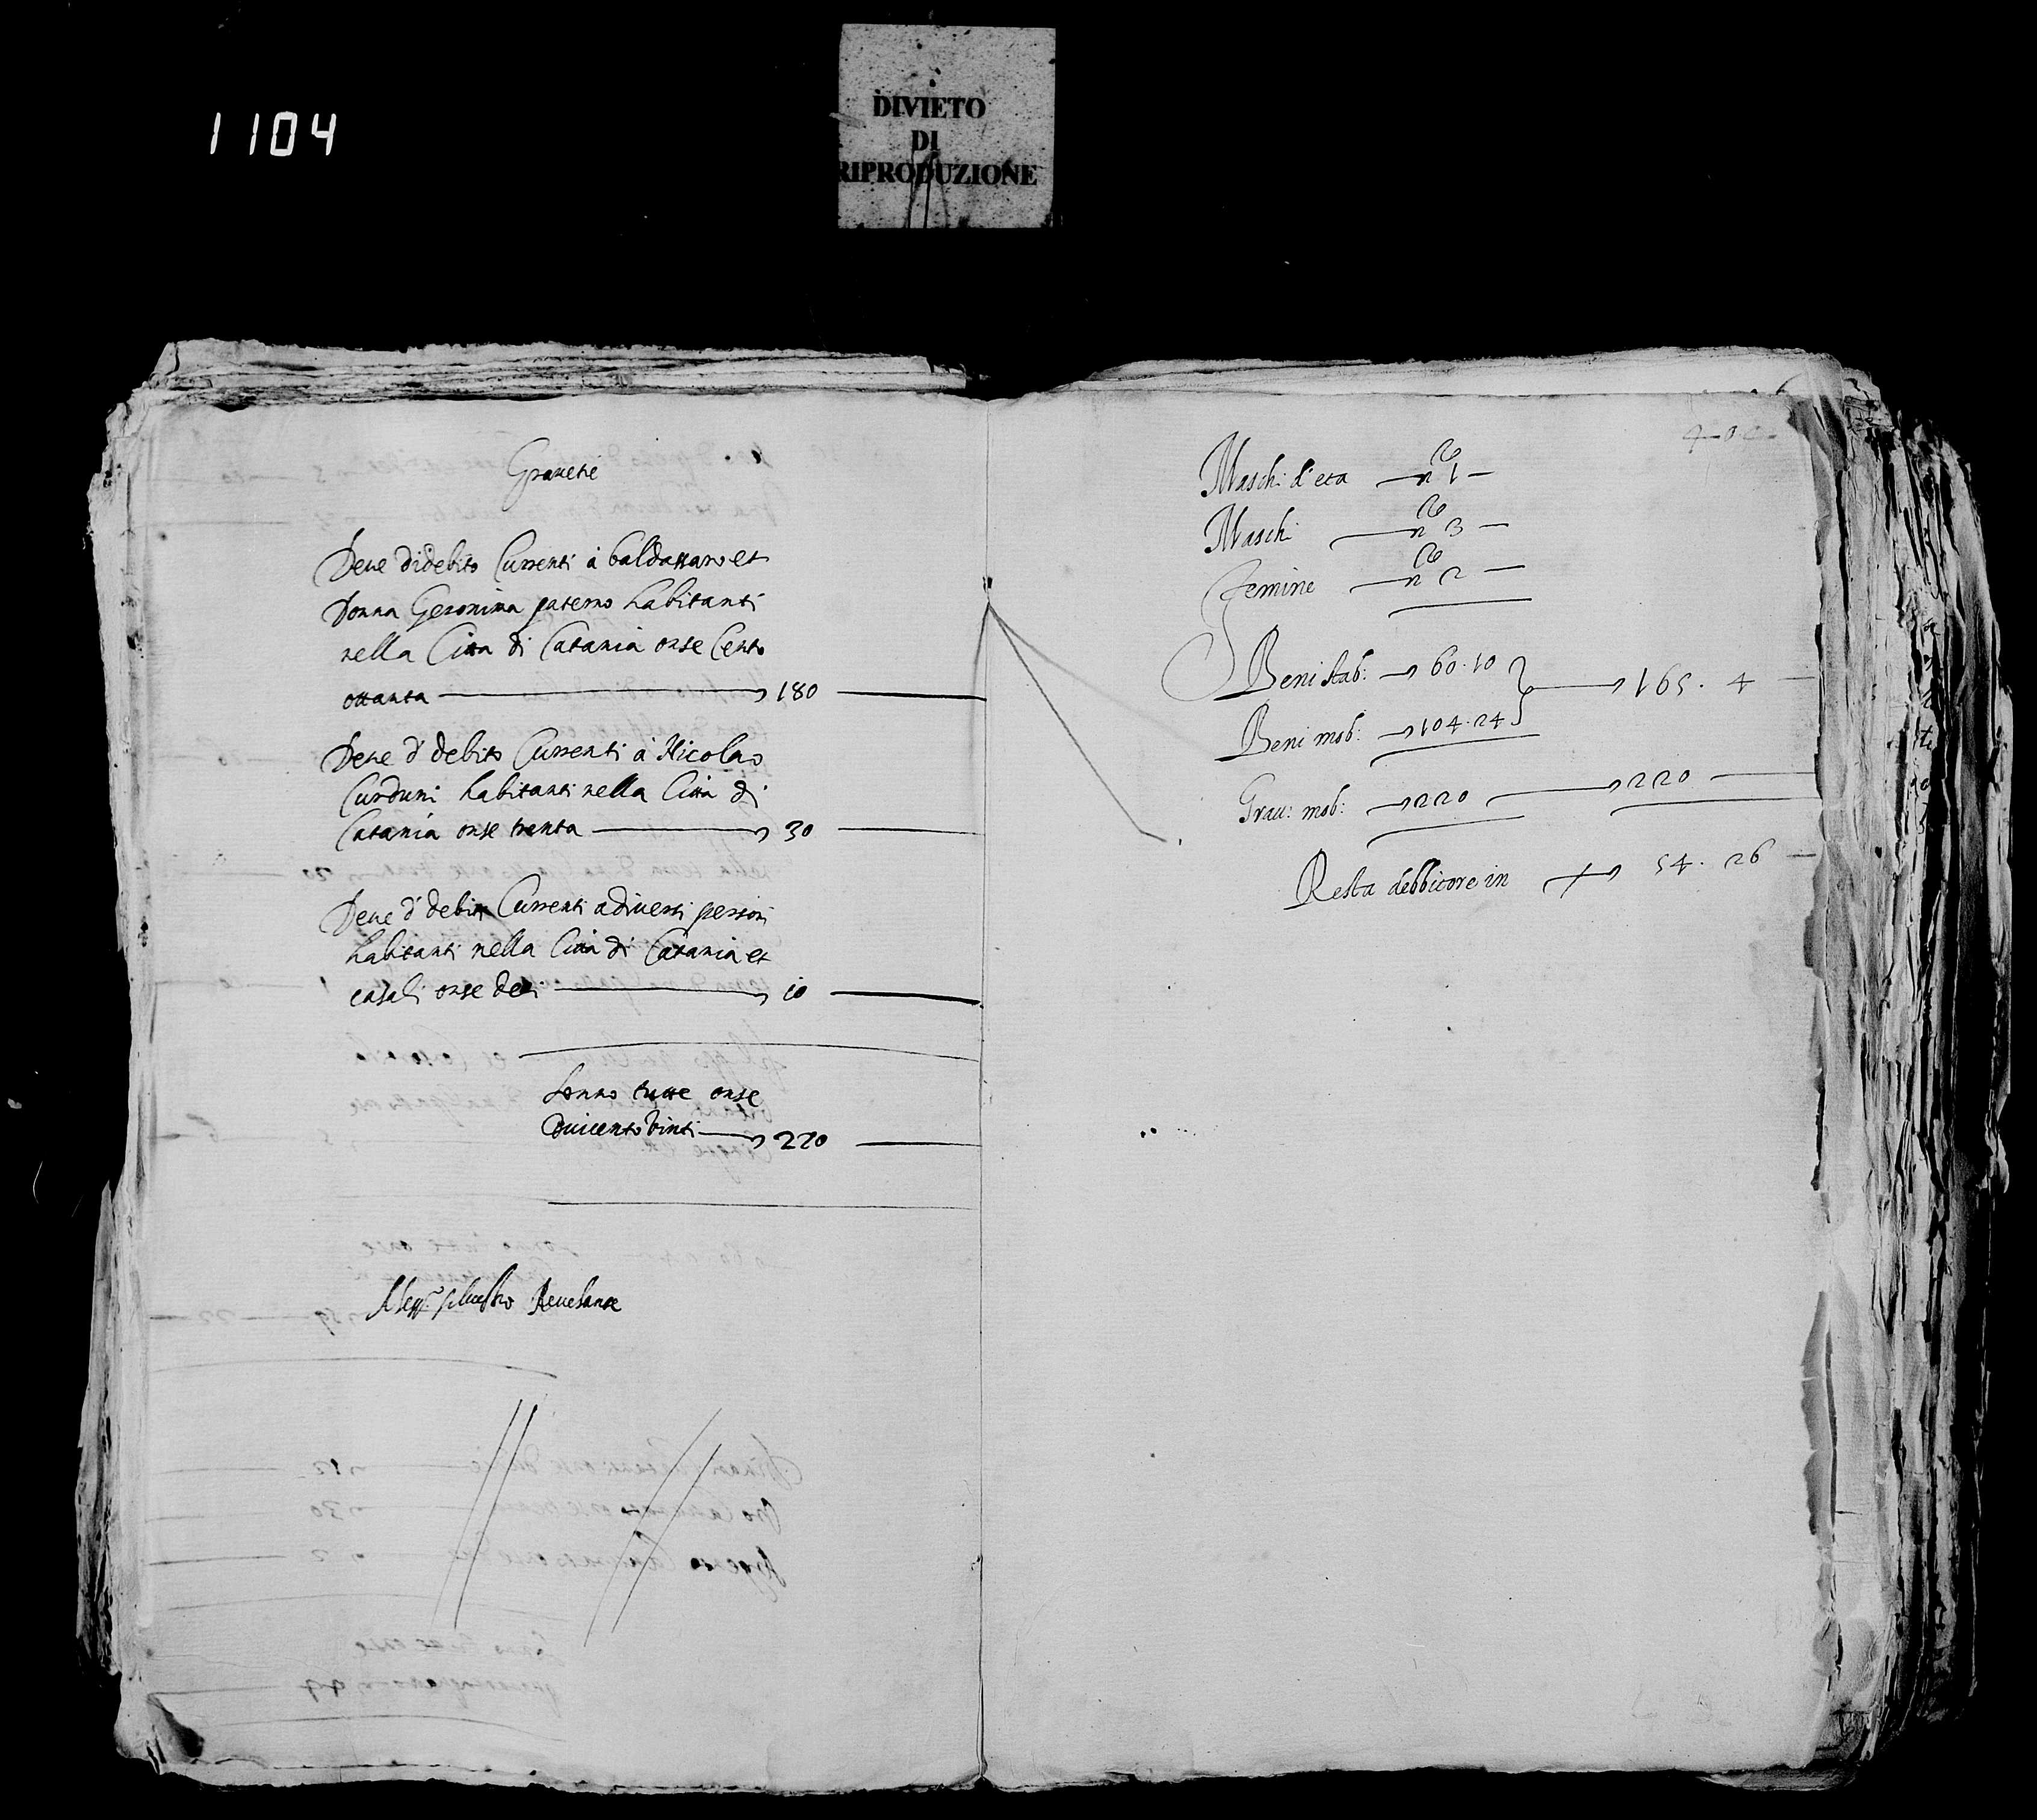 1104
DIVIETO
DI
RIPRODUZIONE
Gravetie
Deve di debito Currenti à baldassaro et
Donna Geronima paterno habitanti
nella Citta di Catania onse Cento
ottanta 180
Deve d' debito Currenti à Nicolao
Curduni habitanti nella Citta di
Catania onse trenta 30
Deve d' debiti Currenti a diversi persori
habitanti nella Citta di Catania et
casali onse deci 10
Sonno tutte onse
Duicento vinti 220
silvestro Revelante
Maschi d'eta n.º 1
Maschi n.º 3
Femine n.º 2
Beni stab: 60.10
165. 4
Beni mob: 104.24
Grav: mob: 220 220
Resta debbitore in 54. 26